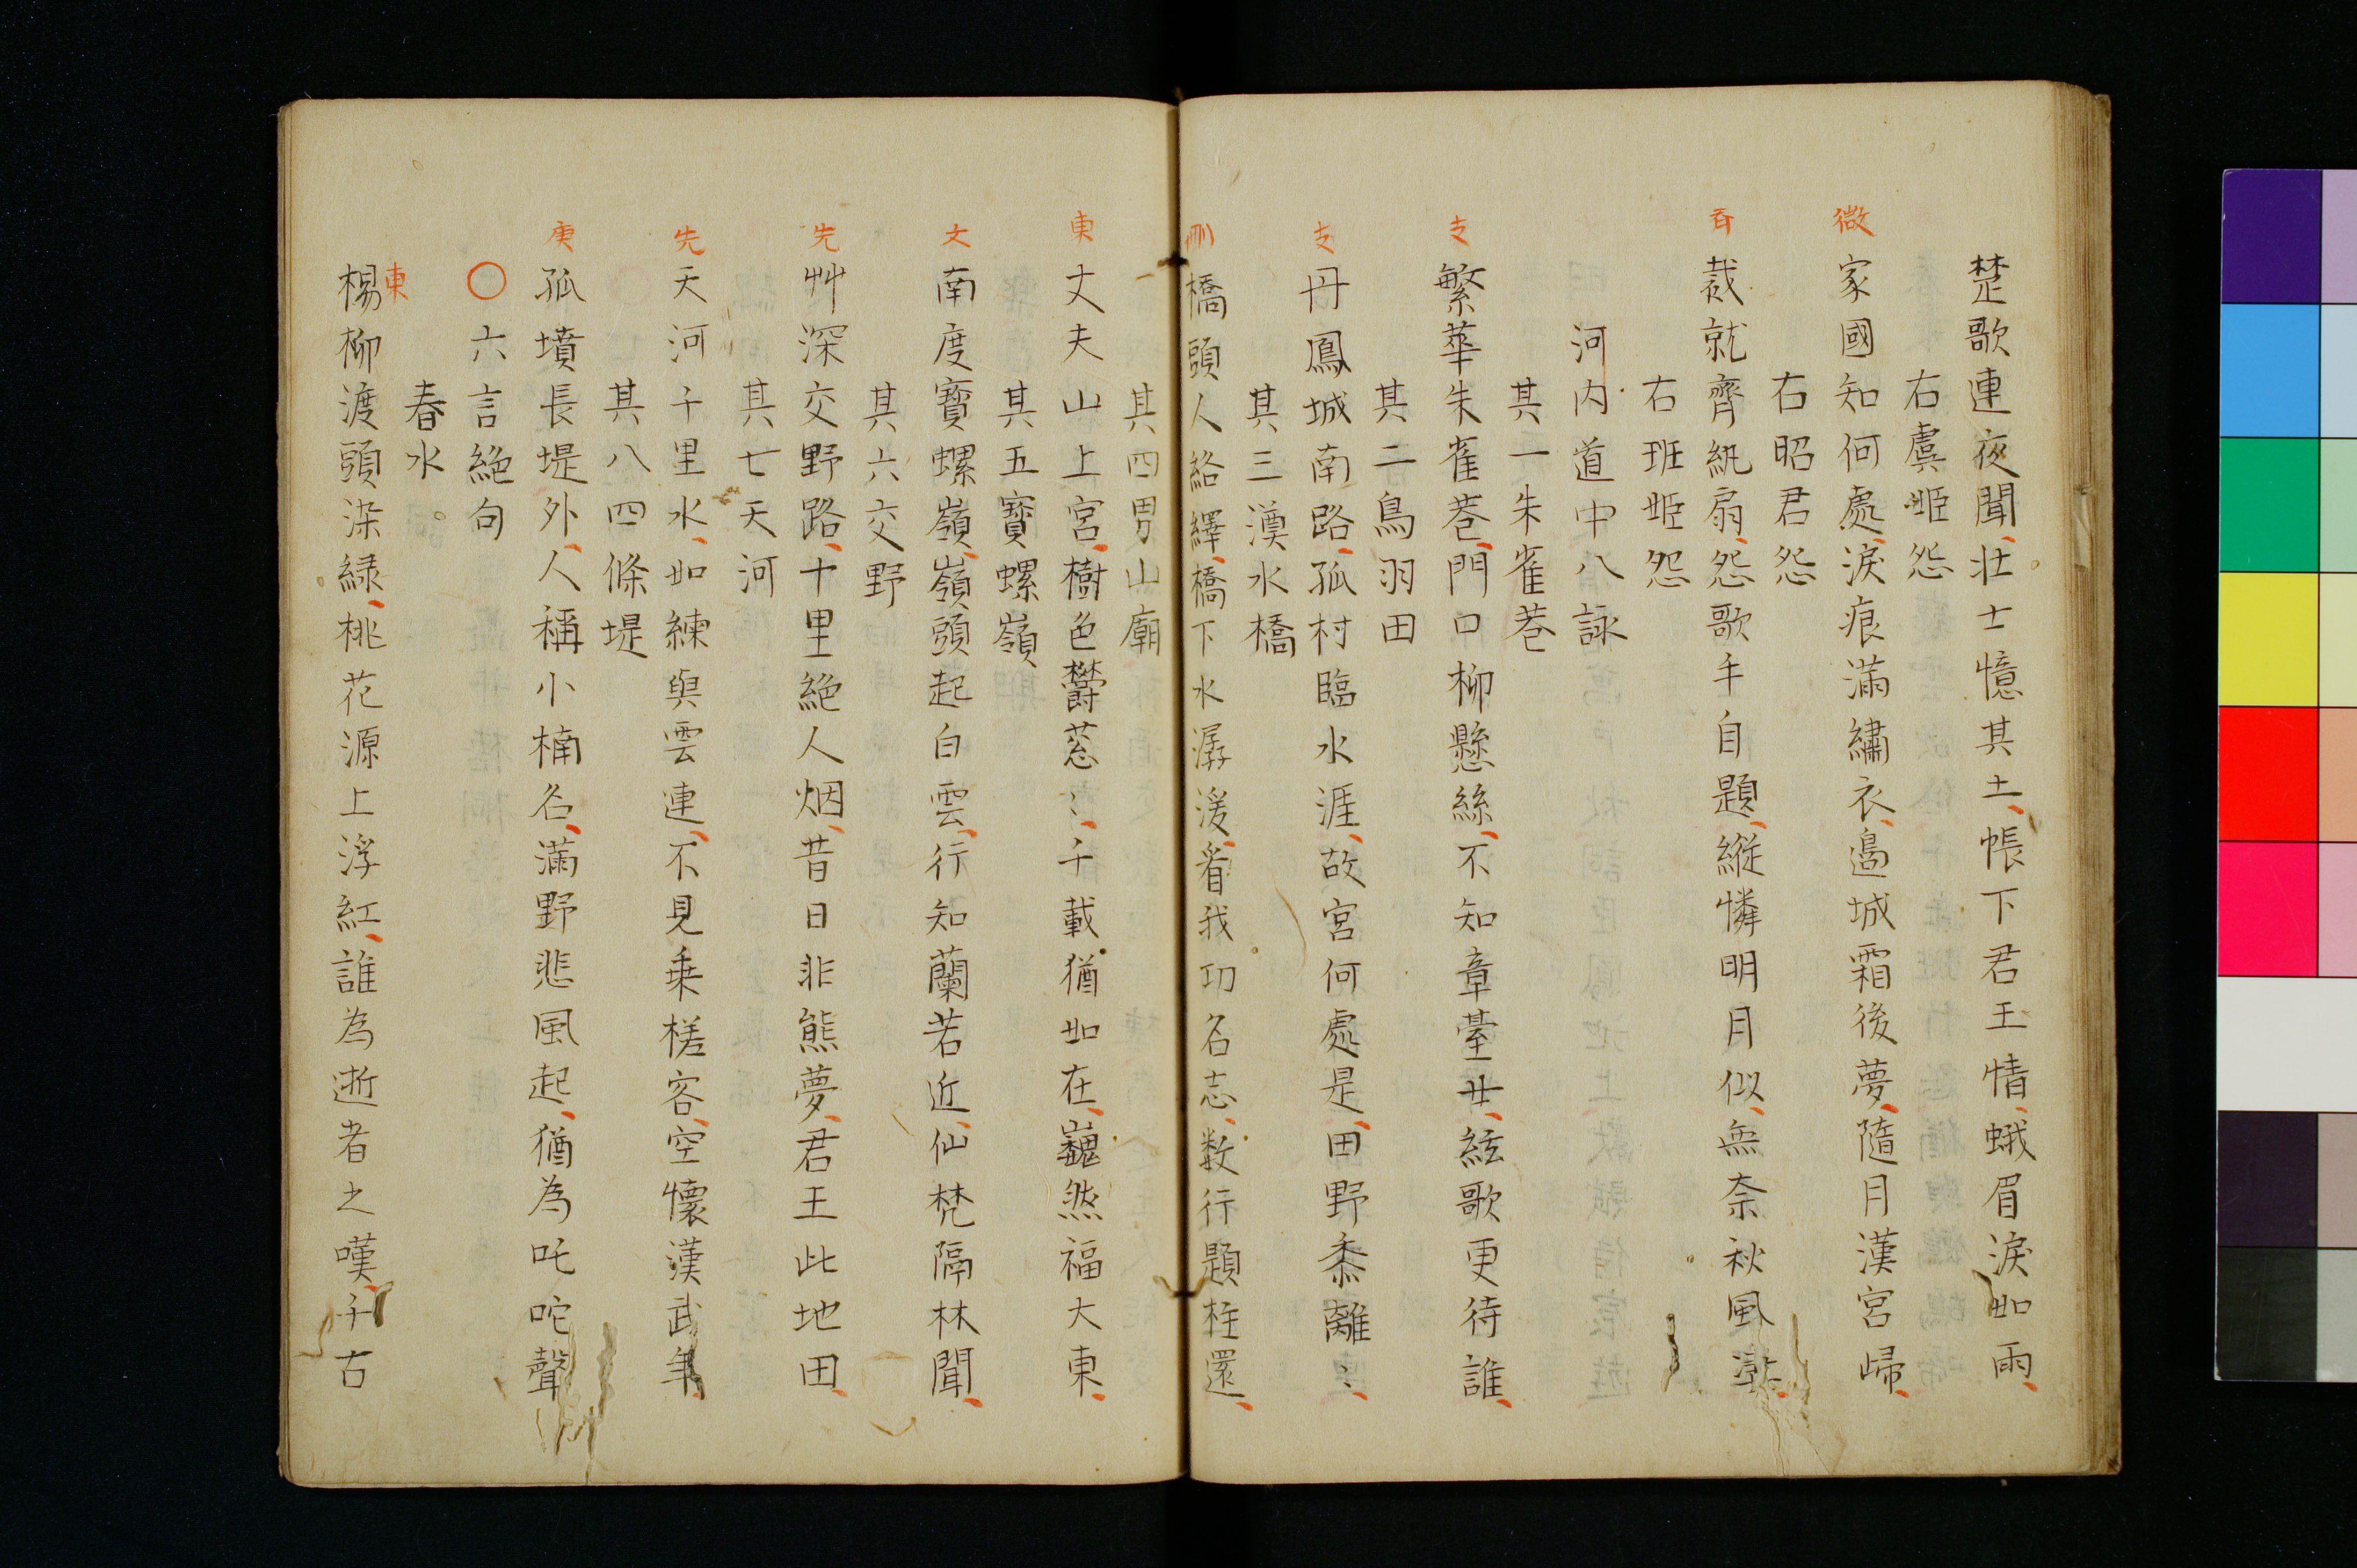 楚歌連夜聞壮士憶其土帳下君王情蛾眉淚如雨
右虞姫怨
微
家國知何處淚痕滿繡衣邉城霜後夢隨月漢宮歸
右昭君怨
裁就齊紈扇怨歌手自題縦憐明月似無奈秋風
右班姫怨
河内道中八詠
其一朱雀巷
支
繁華朱雀巷門口柳懸絲不知章薹廿絃歌更待誰
其二鳥羽田
支
丹鳳城南路孤村臨水涯故宮何處是田野黍離〻
其三澳水橋
刪
橋頭人絡繹橋下水潺湲看我功名志数行題柱還
其四男山廟
東
丈夫山上宮樹色欝葱〻千載猶如在巍然福大東
其五寳螺嶺
文
南度寳螺嶺嶺頭起白雲行知蘭若近仙梵隔林聞
其六交野
先
艸深交野路十里絶人烟昔日非熊夢君王此地田
其七天河
先
天河千里水如練與雲連不見乗槎客空懷漢武年
其八四條堤
庚
孤墳長堤外人稱小楠名滿野悲風起猶為叱咤聲
〇六言絶句
春水
東
楊柳渡頭染緑桃花源上浮紅誰為逝者之嘆千古